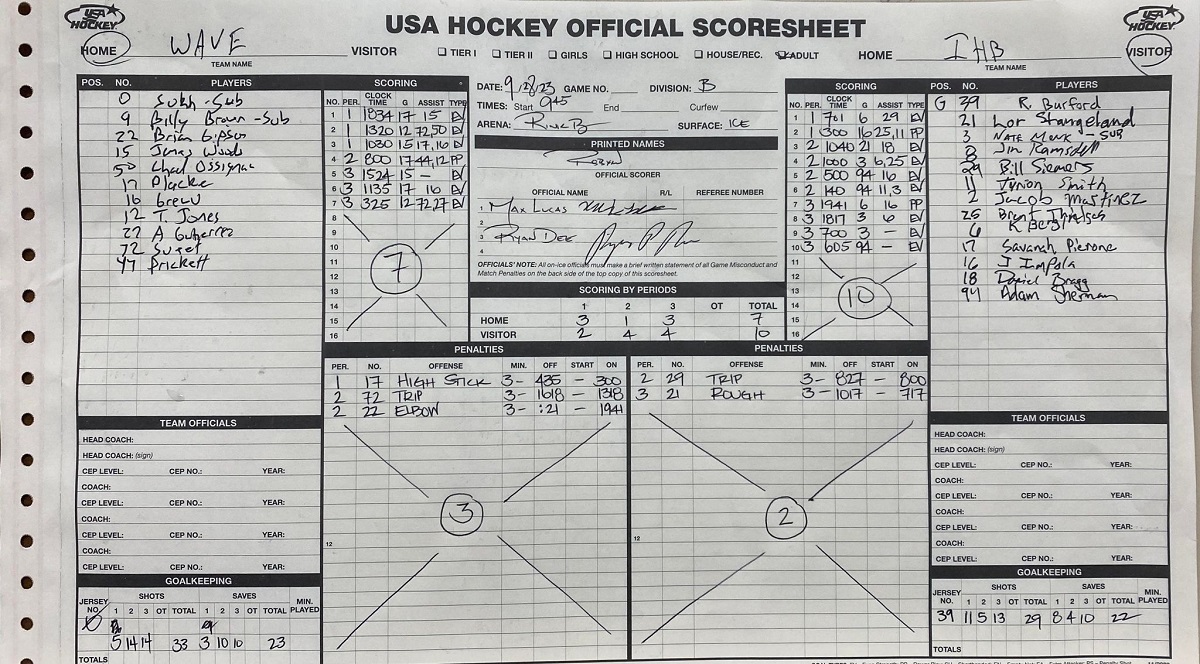 USA HOCKEY
USA HOCKEY OFFICIAL SCORESHEET
USA HOCKEY
HOME WAVE VISITOR
TEAM NAME
☐ TIER I ☐ TIER II ☐ GIRLS ☐ HIGH SCHOOL ☐ HOUSE/REC. ☑ ADULT
HOME IHB VISITOR
TEAM NAME
POS. NO. PLAYERS
0 Sukh - Sub
9 Billy Brown - Sub
22 Brian Gipson
15 Jonas Woods
50 Chad Ossignac
17 Placke
16 Grew
12 T. Jones
27 A Gutierrez
72 Sweet
44 Prickett
SCORING
NO. PER. CLOCK TIME G ASSIST TYPE
1 1 1834 17 15 EV
2 1 1320 12 72,50 EV
3 1 1030 15 17,16 EV
4 2 800 17 44,12 PP
5 3 1524 15 - EV
6 3 1135 17 16 EV
7 3 325 12 72,27 EV
8
9
10
11
12
13
14
15
16
7
DATE: 9/28/23 GAME NO. DIVISION: B
TIMES: Start 945 End Curfew
ARENA: Rink B SURFACE: ICE
PRINTED NAMES
Robyn
OFFICIAL SCORER
OFFICIAL NAME R/L REFEREE NUMBER
1 Max Lucas
2
3 Ryan Dee
4
OFFICIALS' NOTE: All on-ice officials must make a brief written statement of all Game Misconduct and
Match Penalties on the back side of the top copy of this scoresheet.
SCORING BY PERIODS
1 2 3 OT TOTAL
HOME 3 1 3 7
VISITOR 2 4 4 10
SCORING
NO. PER. CLOCK TIME G ASSIST TYPE
1 1 1701 6 29 EV
2 1 1300 16 25,11 PP
3 2 1040 21 18 EV
4 2 1000 3 6,25 EV
5 2 500 94 16 EV
6 2 140 94 11,3 EV
7 3 1941 6 16 PP
8 3 1817 3 6 EV
9 3 700 3 - EV
10 3 605 94 - EV
11
12
13
14
15
16
10
POS. NO. PLAYERS
G 39 R. Burford
21 Lor Stangeland
3 Nate Monk - SUB
8 Jim Ramsdell
29 Bill Siemers
11 Tyrion Smith
2 Jacob Martinez
25 Brent Thielsen
6 K Berg
17 Savanah Pierone
16 J Impola
18 Daniel Bragg
94 Adam Sherman
PENALTIES
PER. NO. OFFENSE MIN. OFF START ON
1 17 HIGH STICK 3 - 435 - 300
2 72 TRIP 3 - 1618 - 1318
2 22 ELBOW 3 - :21 - 1941
12
3
PENALTIES
PER. NO. OFFENSE MIN. OFF START ON
2 29 TRIP 3 - 827 - 800
3 21 ROUGH 3 - 1017 - 717
12
2
TEAM OFFICIALS
HEAD COACH:
HEAD COACH: (sign)
CEP LEVEL: CEP NO.: YEAR:
COACH:
CEP LEVEL: CEP NO.: YEAR:
COACH:
CEP LEVEL: CEP NO.: YEAR:
COACH:
CEP LEVEL: CEP NO.: YEAR:
GOALKEEPING
JERSEY NO. SHOTS SAVES MIN. PLAYED
1 2 3 OT TOTAL 1 2 3 OT TOTAL
0 5 14 14 33 3 10 10 23
TOTALS
TEAM OFFICIALS
HEAD COACH:
HEAD COACH: (sign)
CEP LEVEL: CEP NO.: YEAR:
COACH:
CEP LEVEL: CEP NO.: YEAR:
COACH:
CEP LEVEL: CEP NO.: YEAR:
COACH:
CEP LEVEL: CEP NO.: YEAR:
GOALKEEPING
JERSEY NO. SHOTS SAVES MIN. PLAYED
1 2 3 OT TOTAL 1 2 3 OT TOTAL
39 11 5 13 29 8 4 10 22
TOTALS